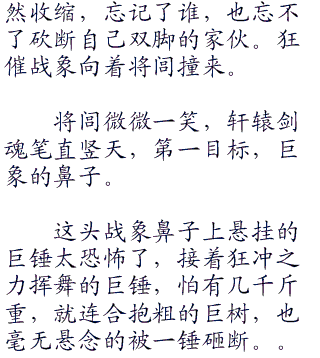 然收缩，忘记了谁，也忘不
了砍断自己双脚的家伙。狂
催战象向着将闾撞来。
将闾微微一笑，轩辕剑
魂笔直竖天，第一目标，巨
象的鼻子。
这头战象鼻子上悬挂的
巨锤太恐怖了，接着狂冲之
力挥舞的巨锤，怕有几千斤
重，就连合抱粗的巨树，也
毫无悬念的被一锤砸断。。